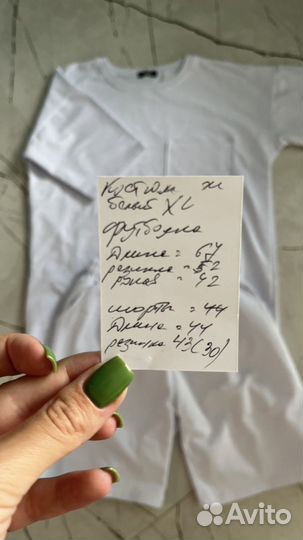 Костюм ж
белый XL
футболка
Длина = 67
= 52
рукав = 42
шорты = 44
Длина = 44
резинка 43(30)
Avito